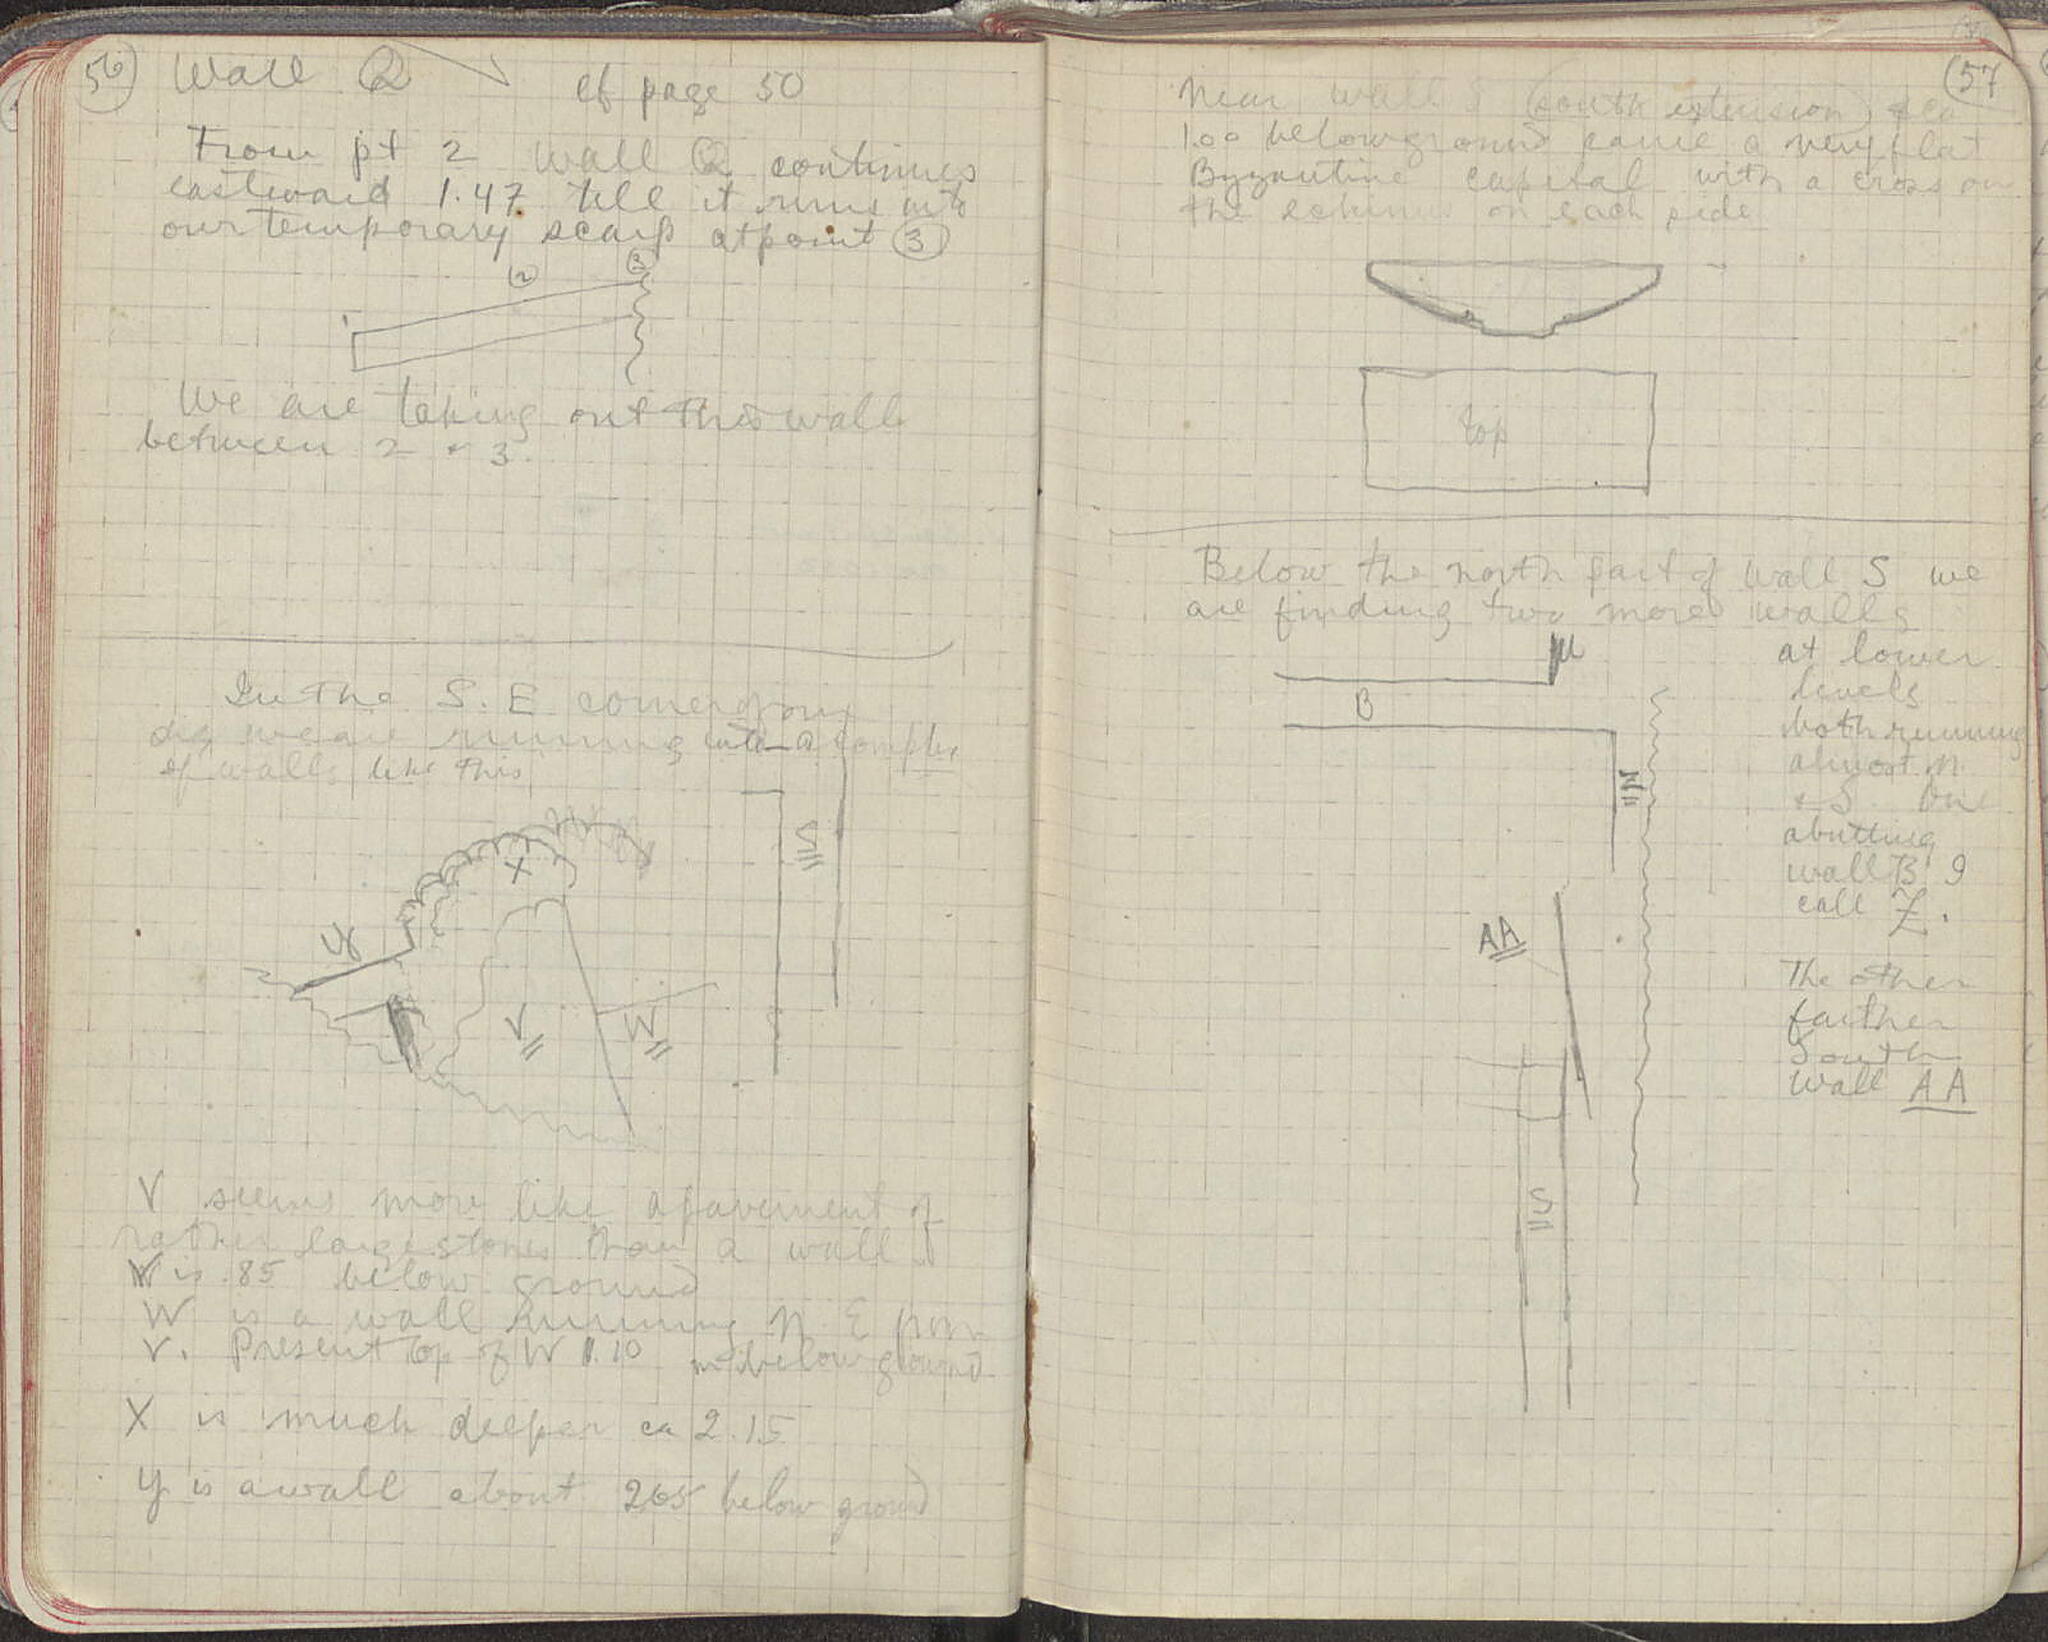 56
Wall Q
cf page 50
From pt 2 Wall Q continues
eastward 1.47 till it runs into
our temporary scarp at point 3
2 3
We are taking out this wall
between 2 + 3.
In the S. E corner of our
dig we are running into a complex
of walls like this
S
X
Y
V
W
V seems more like a pavement of
rather large stones than a wall
V is .85 below ground
W is a wall running N. E from
V. Present top of W 1.10 m below ground
X is much deeper ca 2.15
Y is a wall about 265 below ground
57
Near wall S (south extension) + ca
1.00 below ground came a very flat
Byzantine capital with a cross on
the echinus on each side
top
Below the north part of wall S we
are finding two more walls
at lower
levels
both running
almost N
+ S. One
abutting
wall B I
call Z.
The other
farther
South
wall AA
B
Z
AA
S